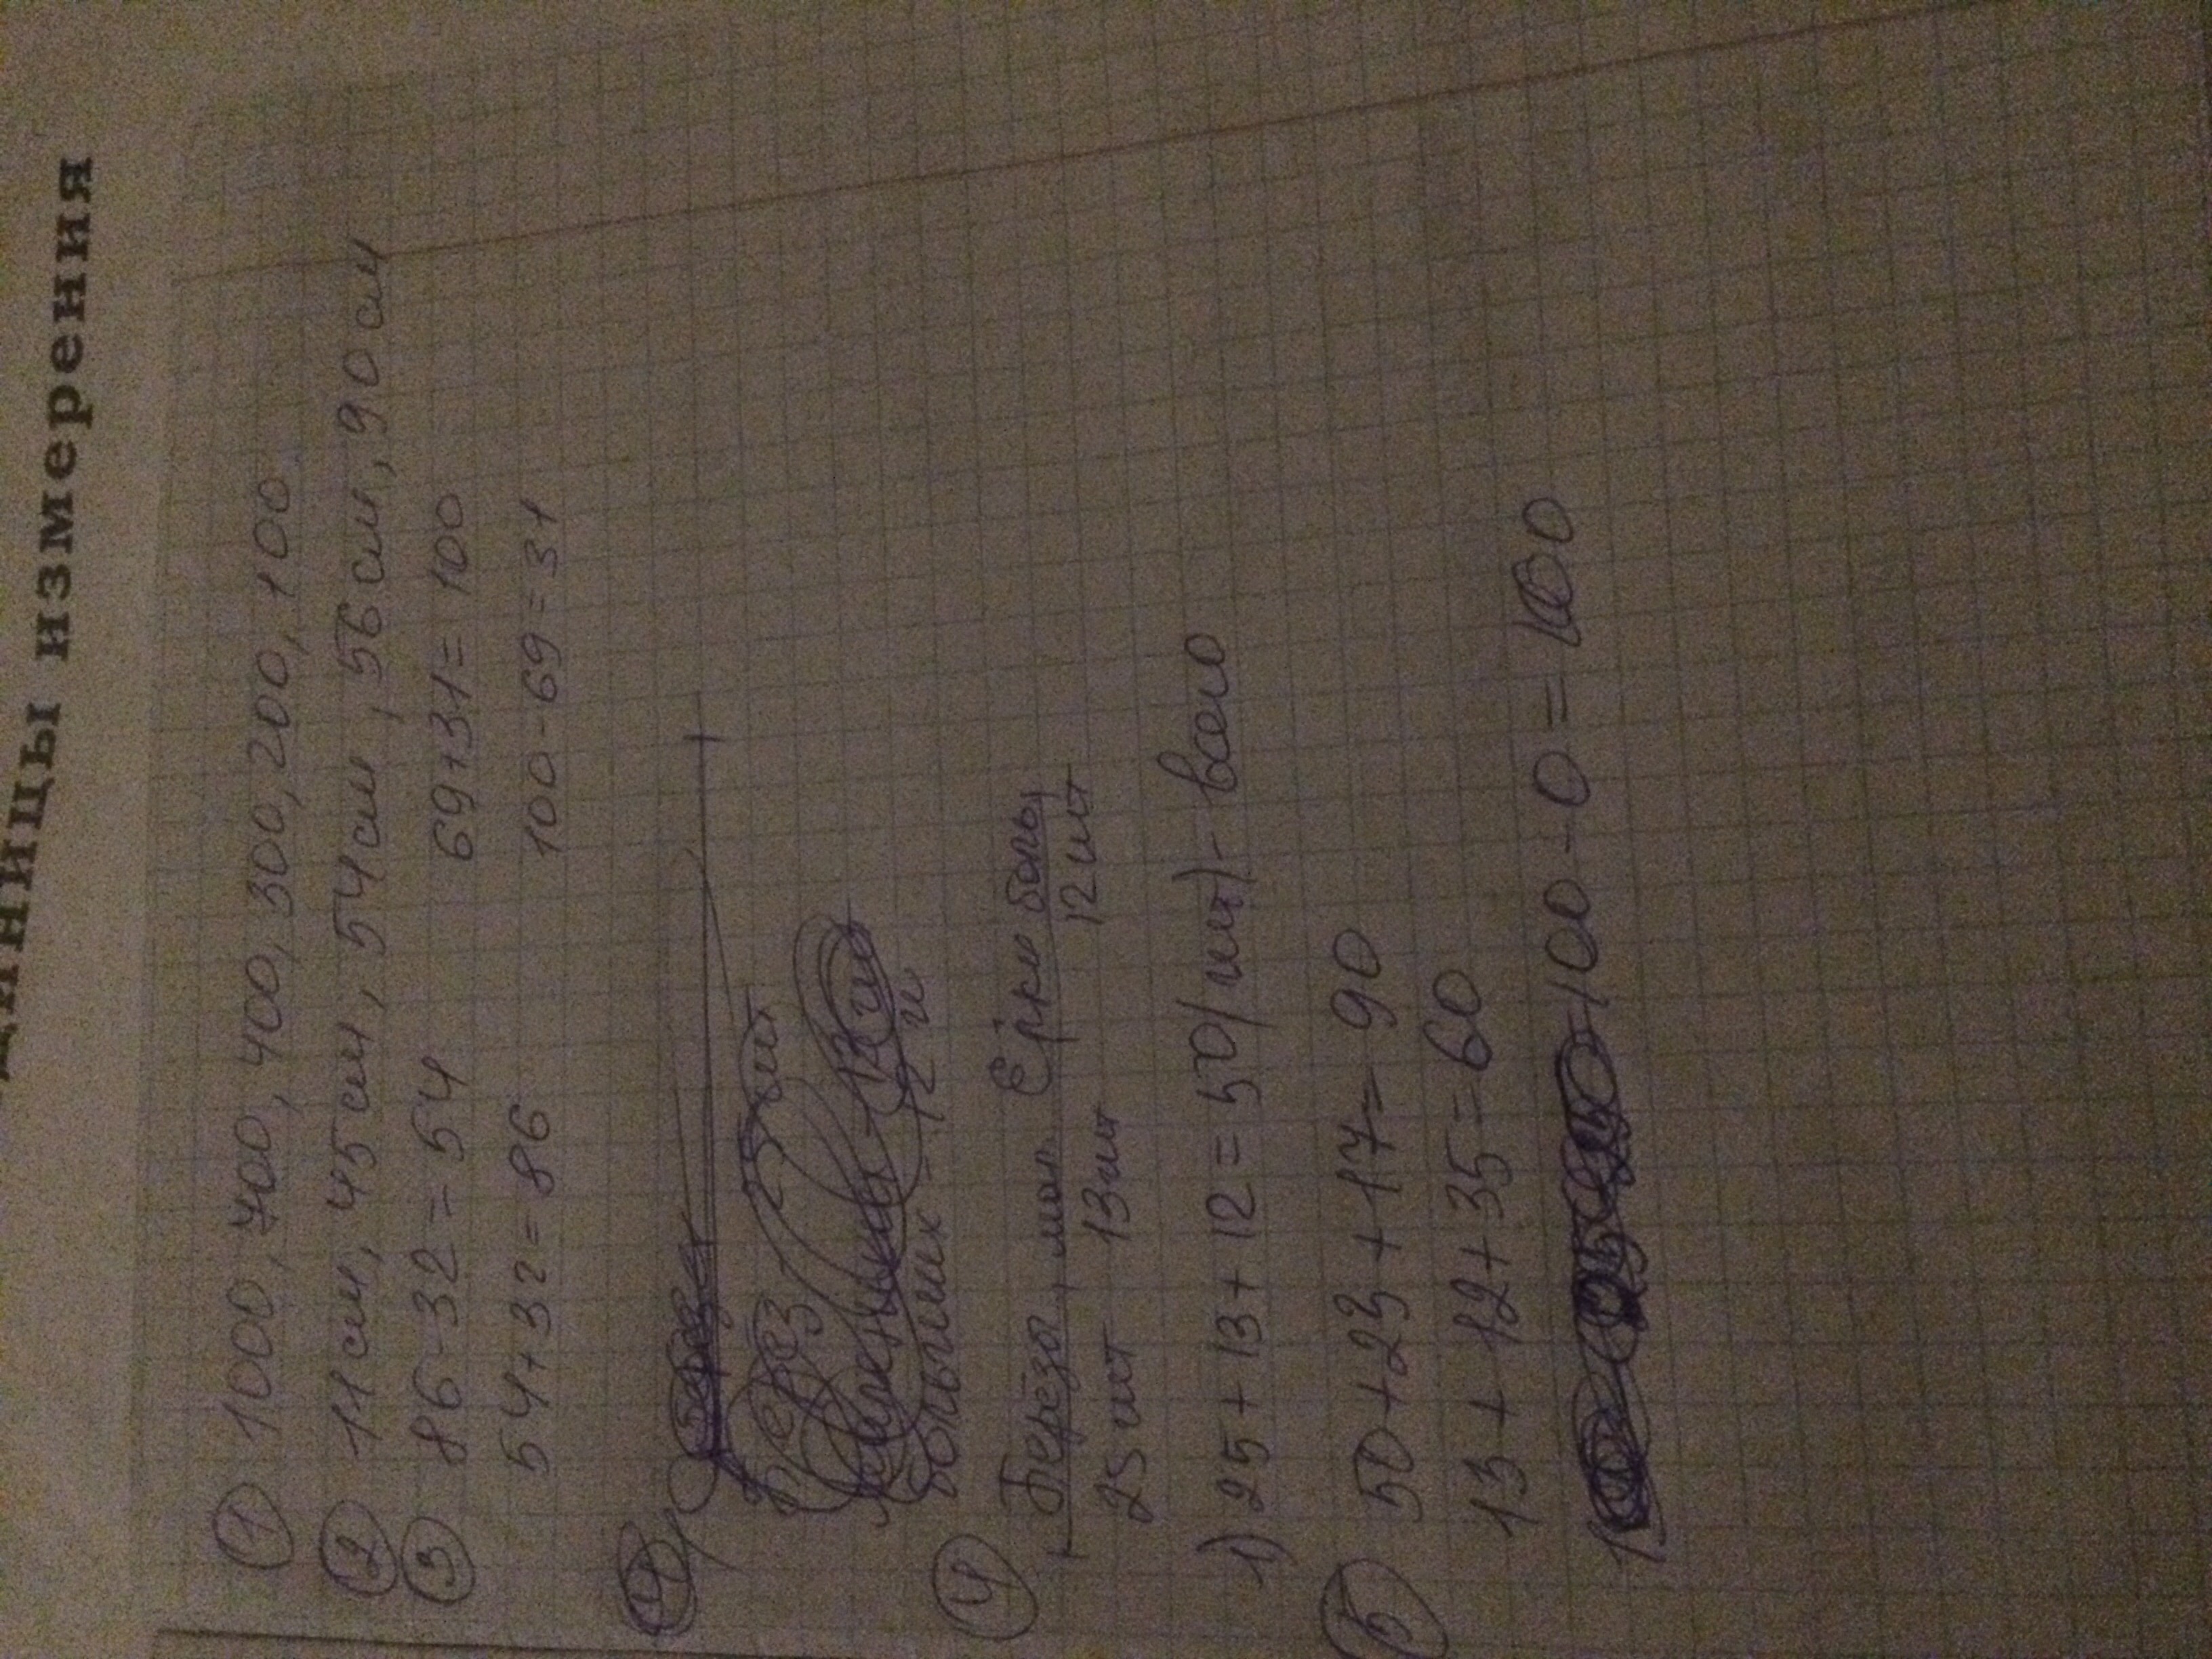 измерения
① 1000, 700, 400, 300, 200, 100
② 11 см, 45 см, 54 см, 56 см, 90 см
③ 86-32=54 69+31=100
54+32=86 100-69=31
25 шт
больших - 12 ш
④ Берёза, мал. Ёлки больш
25 шт 13 шт 12 шт
1) 25+13+12=50(шт)- всего
⑤ 50+23+17=90
13+12+35=60
100-0=100